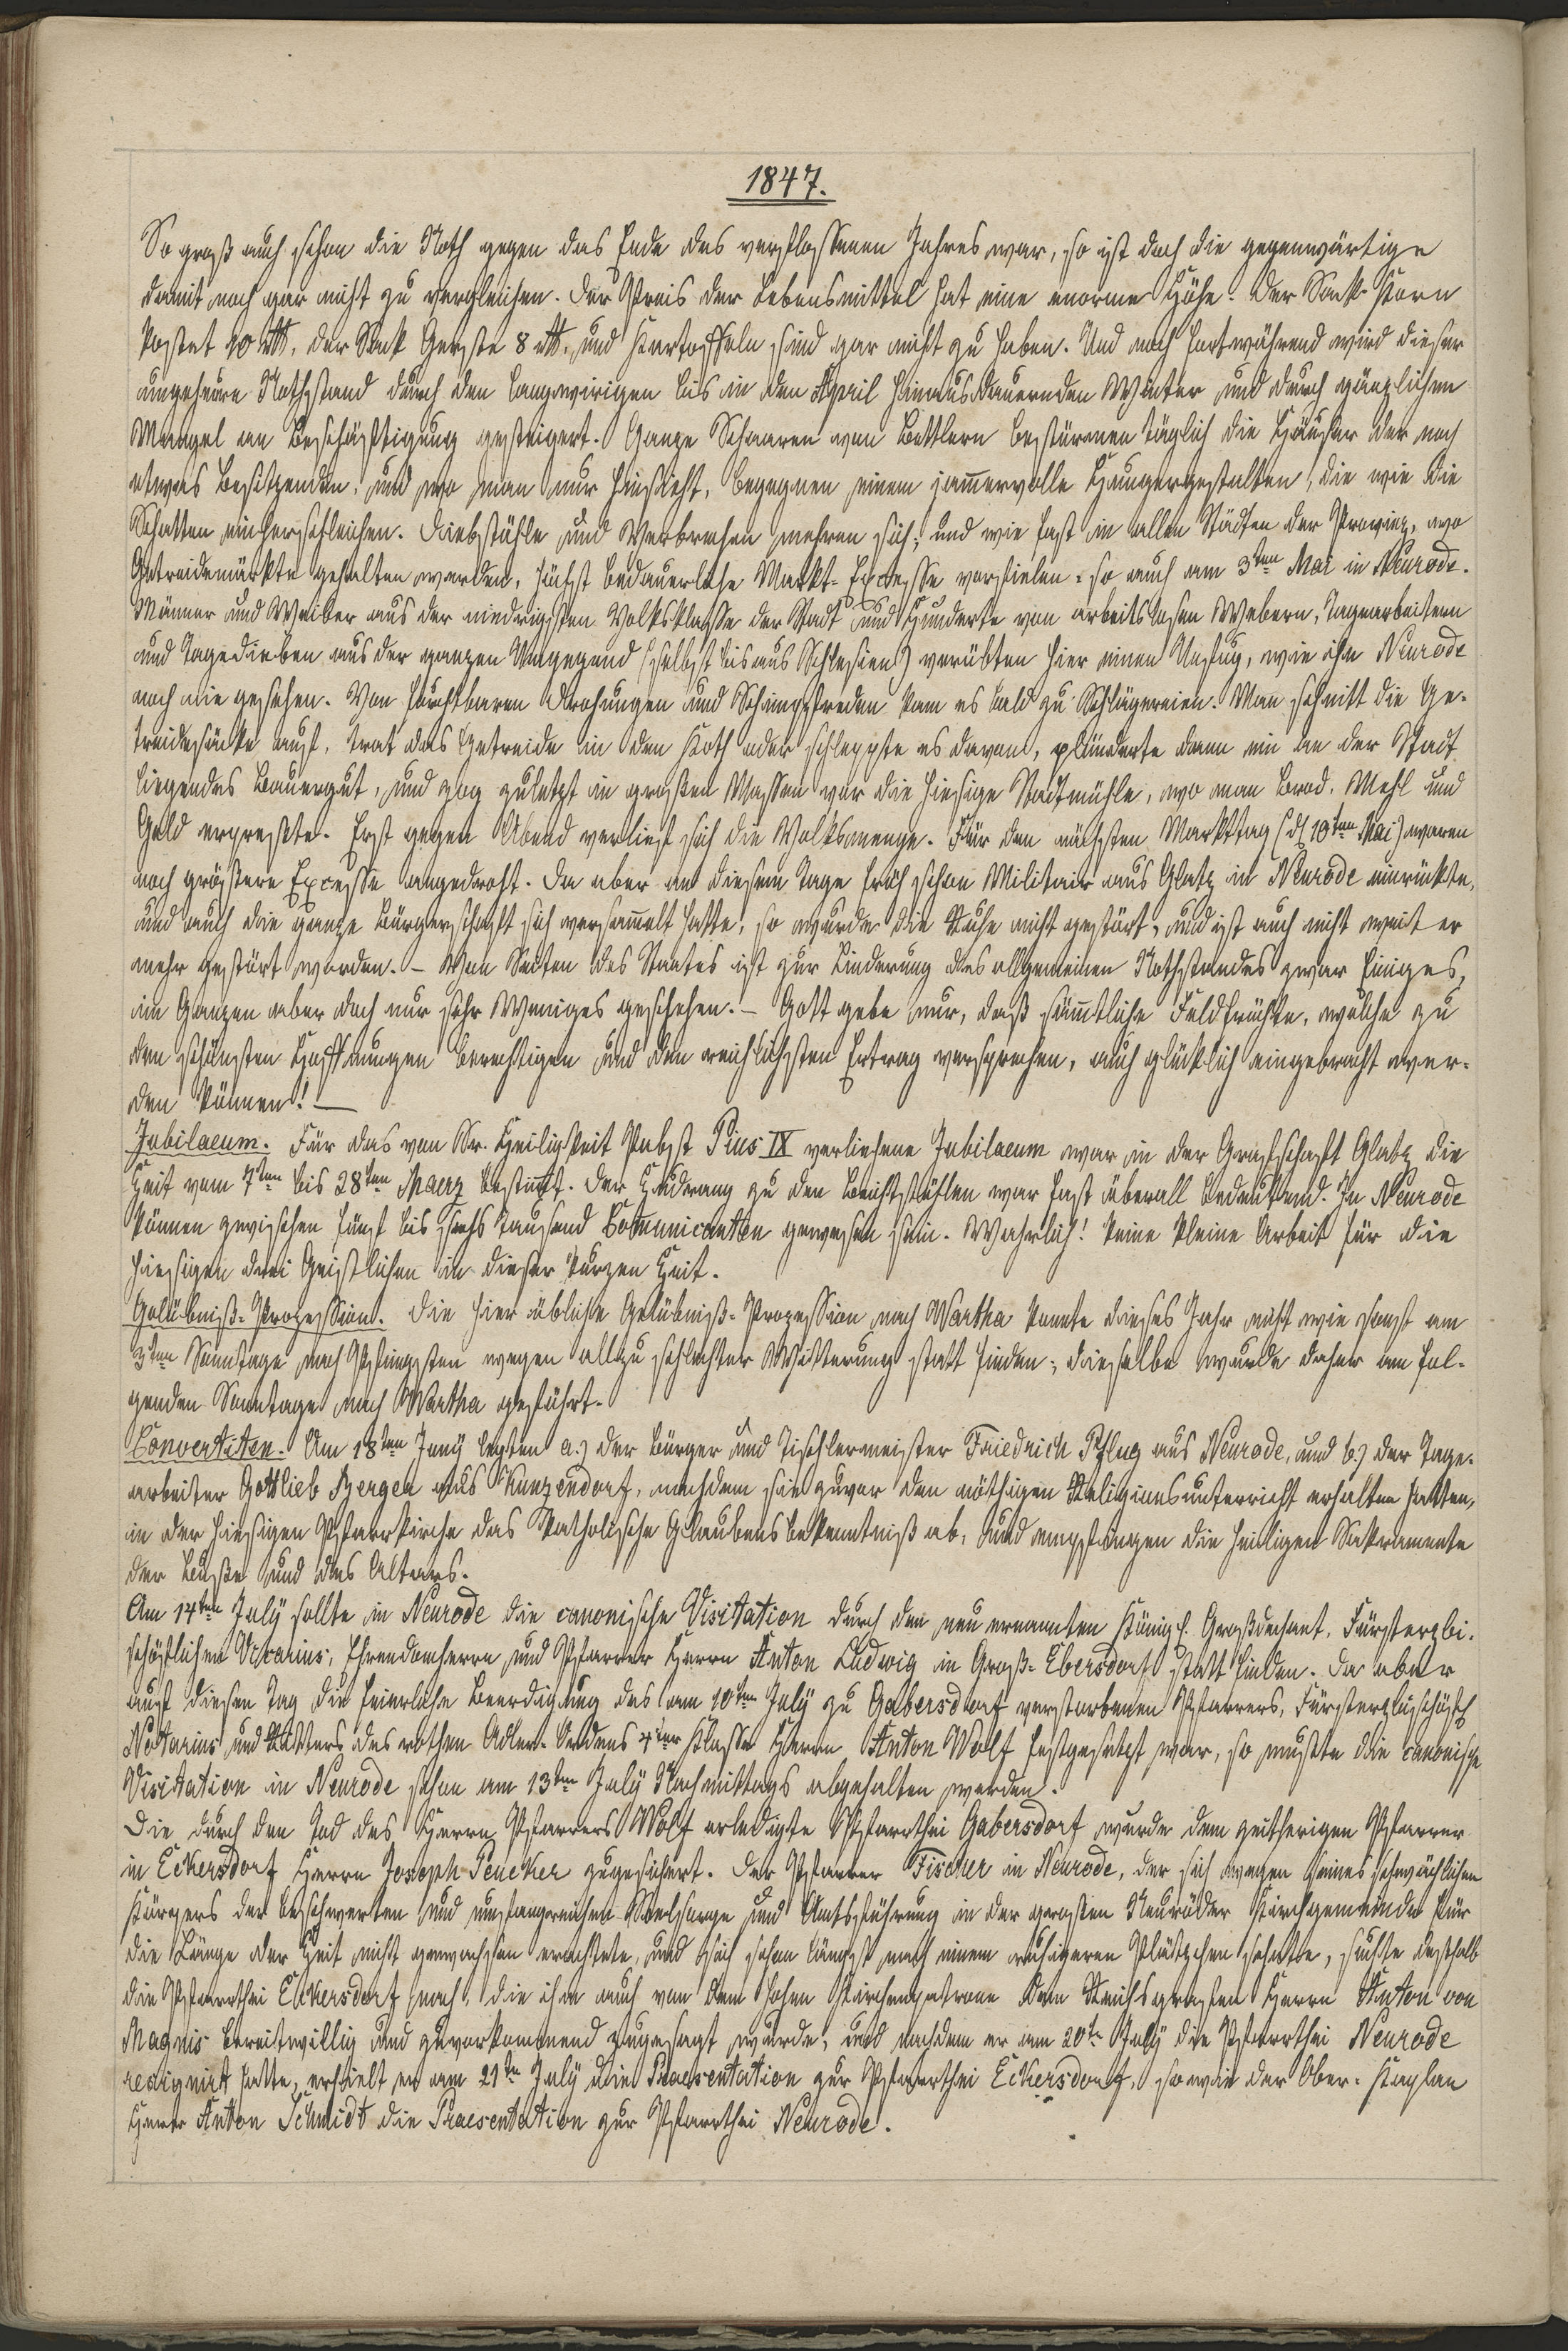 1847.
So groß auch schon die Noth gegen das Ende des verflossenen Jahres war, so ist doch die gegenwärtige
damit noch gar nicht zu vergleichen. Der Preis der Lebensmittel hat eine enorme Höhe. Der Sack Korn
kostet 10 rtl, der Sack Gerste 8 rtl, und Kartoffeln sind gar nicht zu haben. Und noch fortwährend wird dieser
ungeheure Nothstand durch den langwierigen bis in den April hinausdauernden Winter und durch gänzlichen
Mangel an Beschäftigung gesteigert. Ganze Schaaren von Bettlern bestürmen täglich die Häuser der noch
etwas Besitzenden, und wo man nur hinsieht, begegnen einem jam̄ervolle Hungergestalten, die wie die
Schatten einherschleichen. Diebstähle und Verbrechen mehren sich; und wie fast in allen Städten der Provinz, wo
Getreidemärkte gehalten werden, höchst bedauerliche Markt-Excesse vorfielen, so auch am 3ten Mai in Neurode.
Männer und Weiber aus der niedrigsten Volksklasse der Stadt und Hunderte von arbeitslosen Webern, Tagearbeitern
und Tagedieben aus der ganzen Umgegend (selbst bis aus Schlesien) verübten hier einen Unfug, wie ihn Neurode
noch nie gesehen. Von furchtbaren Drohungen und Schimpfreden kam es bald zu Schlägereien. Man schnitt die Ge-
treidesäcke auf, trat das Getreide in den Koth oder schleppte es davon, plünderte dann ein an der Stadt
liegendes Bauergut, und zog zuletzt in großen Massen vor die hiesige Stadtmühle, wo man Brod, Mehl und
Geld erpreßte. Erst gegen Abend verlief sich die Volksmenge. Für den nächsten Markttag (d. 10ten Mai) waren
noch größere Excesse angedroht. Da aber an diesem Tage früh schon Militair aus Glatz in Neurode einrückte,
und auch die ganze Bürgerschaft sich versam̄elt hatte, so wurde die Ruhe nicht gestört, und ist auch nicht weiter
mehr gestört worden. – Von Seiten des Staates ist zur Linderung des allgemeinen Nothstandes zwar Einiges,
im Ganzen aber doch nur sehr Weniges geschehen. – Gott gebe nur, daß säm̄tliche Feldfrüchte, welche zu
den schönsten Hoffnungen berechtigen und den reichlichsten Ertrag versprechen, auch glücklich eingebracht wer-
den können! —
Jubilaeum. Für das von Sr. Heiligkeit Pabst Pius IX verliehene Jubilaeum war in der Grafschaft Glatz die
Zeit vom 7ten bis 28ten Maerz bestim̄t. Der Zudrang zu den Beichtstühlen war fast überall bedeutend. In Neurode
können zwischen fünf bis sechs tausend Com̄unicanten gewesen sein. Wahrlich! keine kleine Arbeit für die
hiesigen drei Geistlichen in dieser kurzen Zeit.
Gelübniß-Prozession. Die hier übliche Gelübniß-Prozession nach Wartha konnte dieses Jahr nicht wie sonst am
3ten Sonntage nach Pfingsten wegen allzu schlechter Witterung statt finden; dieselbe wurde daher am fol-
genden Sonntage nach Wartha geführt.
Convertiten. Am 18ten Juny legten a.) der Bürger und Tischlermeister Friedrich Pflug aus Neurode, und b.) der Tage-
arbeiter Gottlieb Berger aus Kunzendorf, nachdem sie zuvor den nöthigen Religionsunterricht erhalten hatten,
in der hiesigen Pfarrkirche das katholische Glaubensbekenntniß ab, und empfingen die heiligen Sakramente
der Buße und des Altars.
Am 14ten July sollte in Neurode die canonische Visitation durch den neu ernannten Königl. Großdechant, Fürsterzbi-
schöflichen Vicarius, Ehrendomherrn und Pfarrer Herrn Anton Ludwig in Groß-Ebersdorf statt finden. Da aber
auf diesen Tag die feierliche Beerdigung des am 10ten July zu Gabersdorf verstorbenen Pfarrers, Fürsterzbischöfl.
Notarius und Ritters des rothen Adler-Ordens 4ter Klasse Herrn Anton Wolf festgesetzt war, so mußte die canonische
Visitation in Neurode schon am 13ten July Nachmittags abgehalten werden.
Die durch den Tod des Herrn Pfarrers Wolf erledigte Pfarrthei Gabersdorf wurde dem zeitherigen Pfarrer
in Eckersdorf Herrn Joseph Peucker zugesichert. Der Pfarrer Fischer in Neurode, der sich wegen seines schwächlichen
Körpers der beschwerten und umfangreichen Seelsorge und Amtsführung in der großen Neuroder Kirchgemeinde für
die Länge der Zeit nicht gewachsen erachtete, und sich schon längst nach einem ruhigeren Plätzchen sehnte, suchte deshalb
die Pfarrthei Eckersdorf nach, die ihm auch von dem hohen Kirchenpatrone dem Reichsgrafen Herrn Anton von
Magnis bereitwillig und zuvorkommend zugesagt wurde; und nachdem er am 20te July die Pfarrthei Neurode
resignirt hatte, erhielt er am 21ten July die Praesentation zur Pfarrthei Eckersdorf, so wie der Ober-Kaplan
Herr Anton Schmidt die Praesentation zur Pfarrthei Neurode.